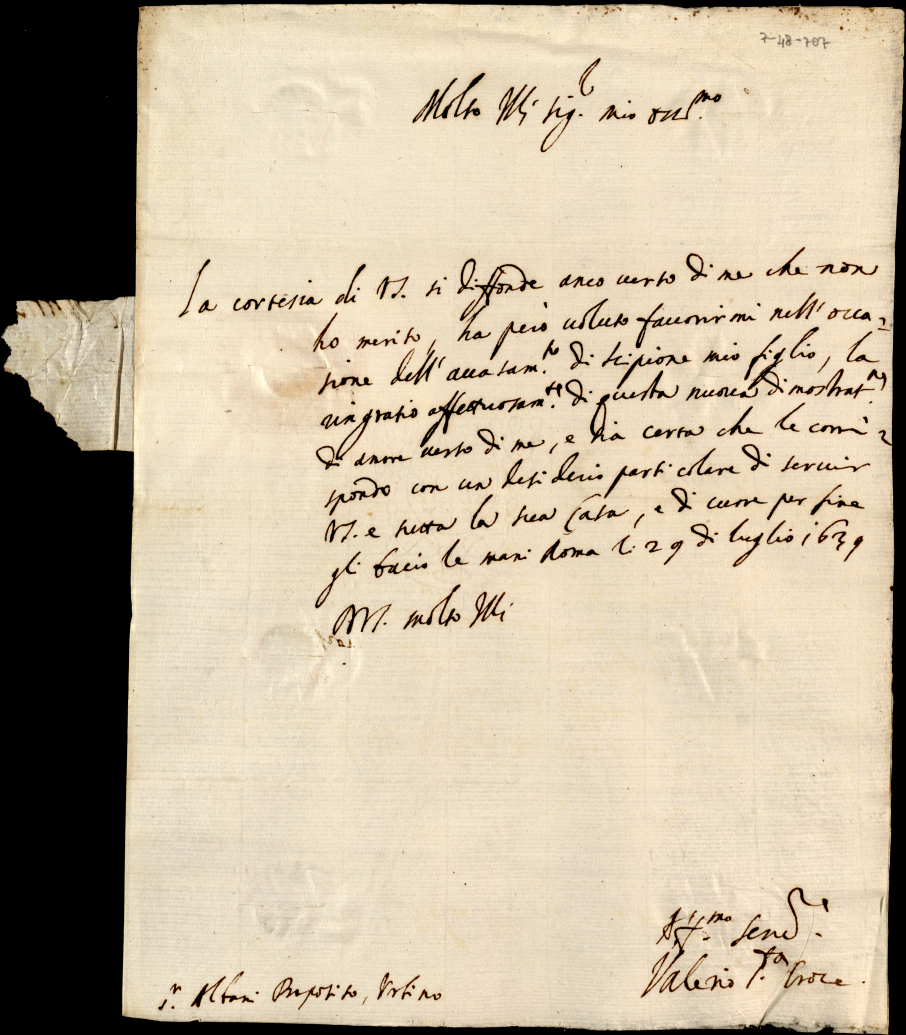 7-48-707
Molto Ill.^ri Sig.^r mio oss.^mo
La cortesia di VS. si diffonde anco verso di me che non
ho merito, ha però voluto favorirmi nell' occa=
sione dell' accasam.^to di Scipione mio figlio, la
ringratio affettuosam.^te di questa nuova dimostrat.^ne
di amore verso di me, e sia certa che le corri=
spondo con un desiderio particolare di servir
VS. e tutta la sua Casa, e di cuore per fine
gli bacio le mani Roma li 29 di luglio 1639
Di VS. molto Ill.^ri
Aff.^mo Ser.^
Valerio S.^ta Croce.
S.^r Albani Proposito, Urbino